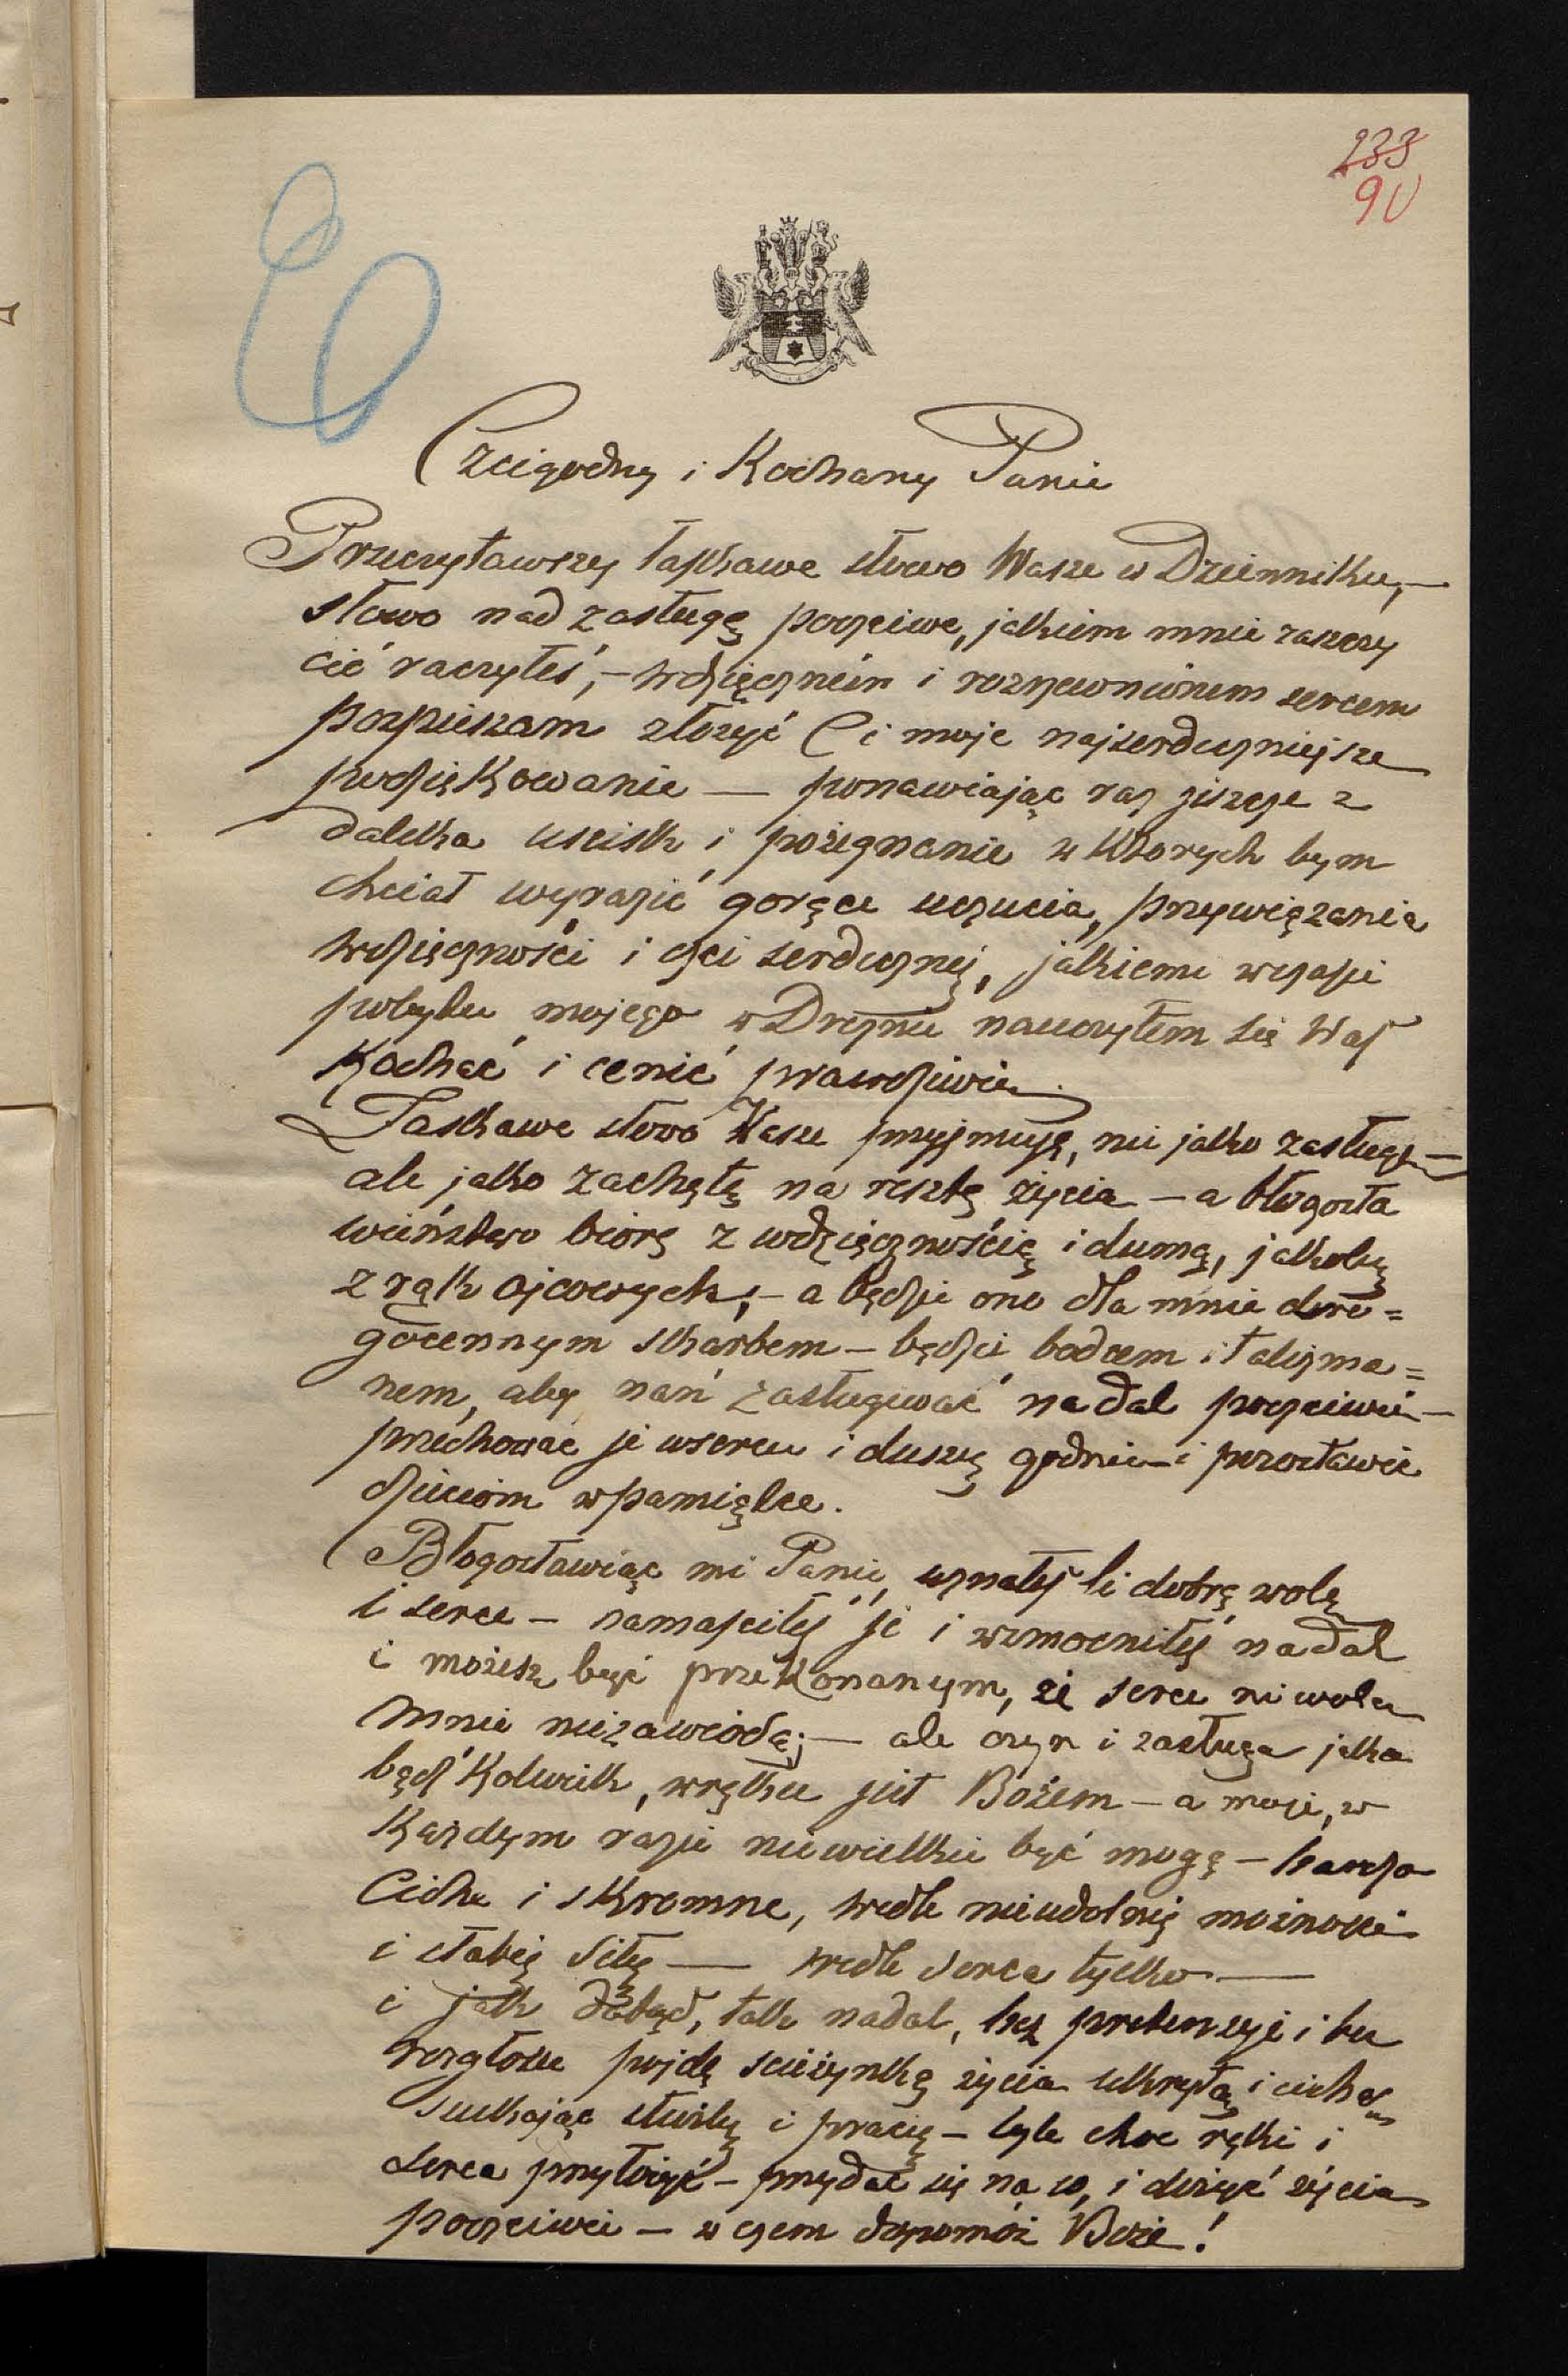 233
90
Czcigodny i Kochany Panie
Przeczytawszy łaskawe słowo Wasze w Dzienniku, —
słowo nad zasługę poczciwe, jakiem mnie zaszczy
cić raczyłeś, – wdzięczném i rozrzewnionem sercem
pospieszam złożyć Ci moje najserdeczniejsze
podziękowanie — ponawiając raz jeszcze z
daleka uścisk i pożegnanie w których bym
chciał wyrazić gorące uczucia, przywiązania
wdzięczności i czci serdecznej, jakiemi w czasie
pobytu mojego w Dreznie nauczyłem się Was
Kochać i cenić prawdziwie.
Łaskawe słowo Wasze przyjmuję, nie jako zasługę —
ale jako zachętę na resztę życia — a błogosła
wieństwo biorę z wdzięcznością i dumą, jakoby
z rąk ojcowych, – a będzie ono dla mnie dro=
gocennym skarbem — będzie bodcem i talizma=
nem, aby nań zasługiwać nadal poczciwie —
przechować je w sercu i duszy godnie — i pozostawić
dzieciom w pamiątce.
Błogosławiąc mi Panie, uznałeś li dobrą wolę
i serce — namaściłeś je i wzmocniłeś nadal
i możesz być przekonanym, że serce ni wola
mnie niezawiodą; — ale czyn i zasługa jaka
bądź Kolwiek, w ręku jest Bożem — a moje, w
Każdym razie niewielkie być mogą — bardzo
Ciche i skromne, wedle nieudolnej możności
i słabej siły — wedle serca tylko —
i jak dotąd, tak nadal, bez pretensyi i bez
rozgłosu pójdę ścieżynką życia ukrytą i cichą
szukając służby i pracy — byle choc ręki i
serca przyłożyć — przydać się na co, i dożyć życia
poczciwie — w czem dopomóż Boże!